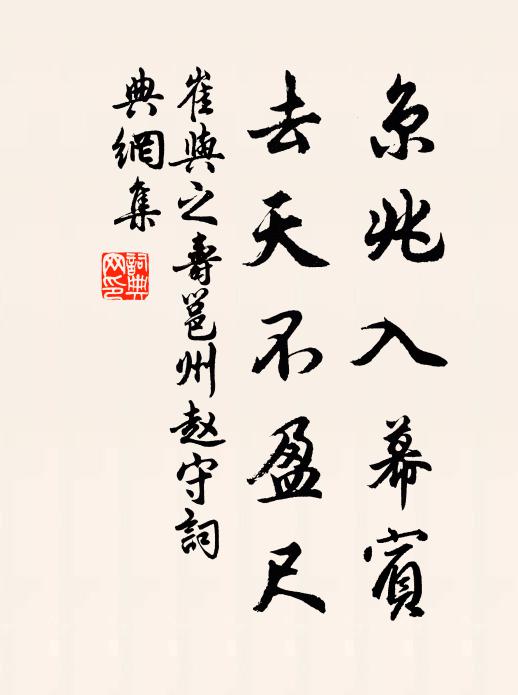 京兆入幕賓
去天不盈尺
崔與之壽邕州赵守詞
典網集
詞典
网印